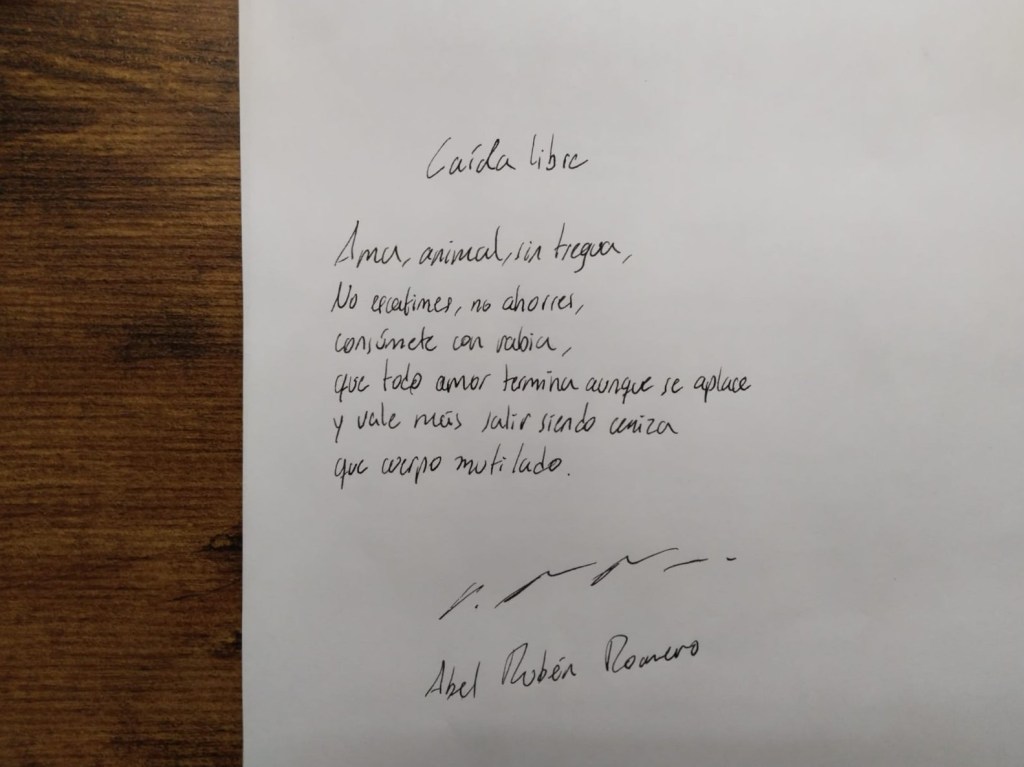 Caída libre
Ama, animal, sin tregua,
No escatimes, no ahorres,
consúmete con rabia,
que todo amor termina aunque se aplace
y vale más salir siendo ceniza
que cuerpo mutilado.
Abel Rubén Romero